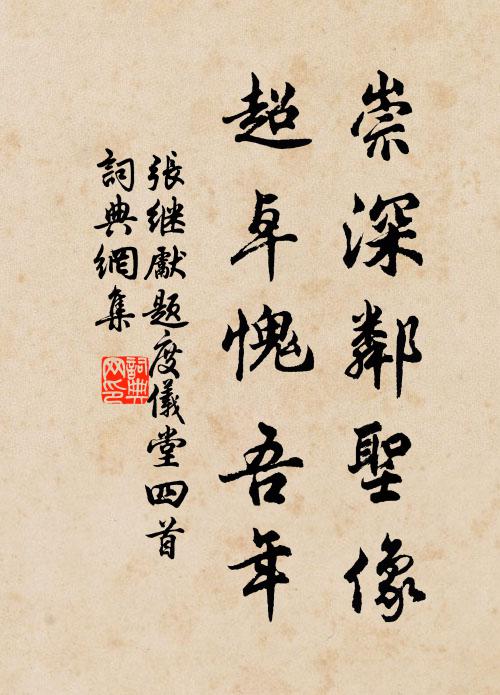 崇深鄰聖像
超卓愧吾年
張继獻题度儀堂四首
詞典網集
詞典网印